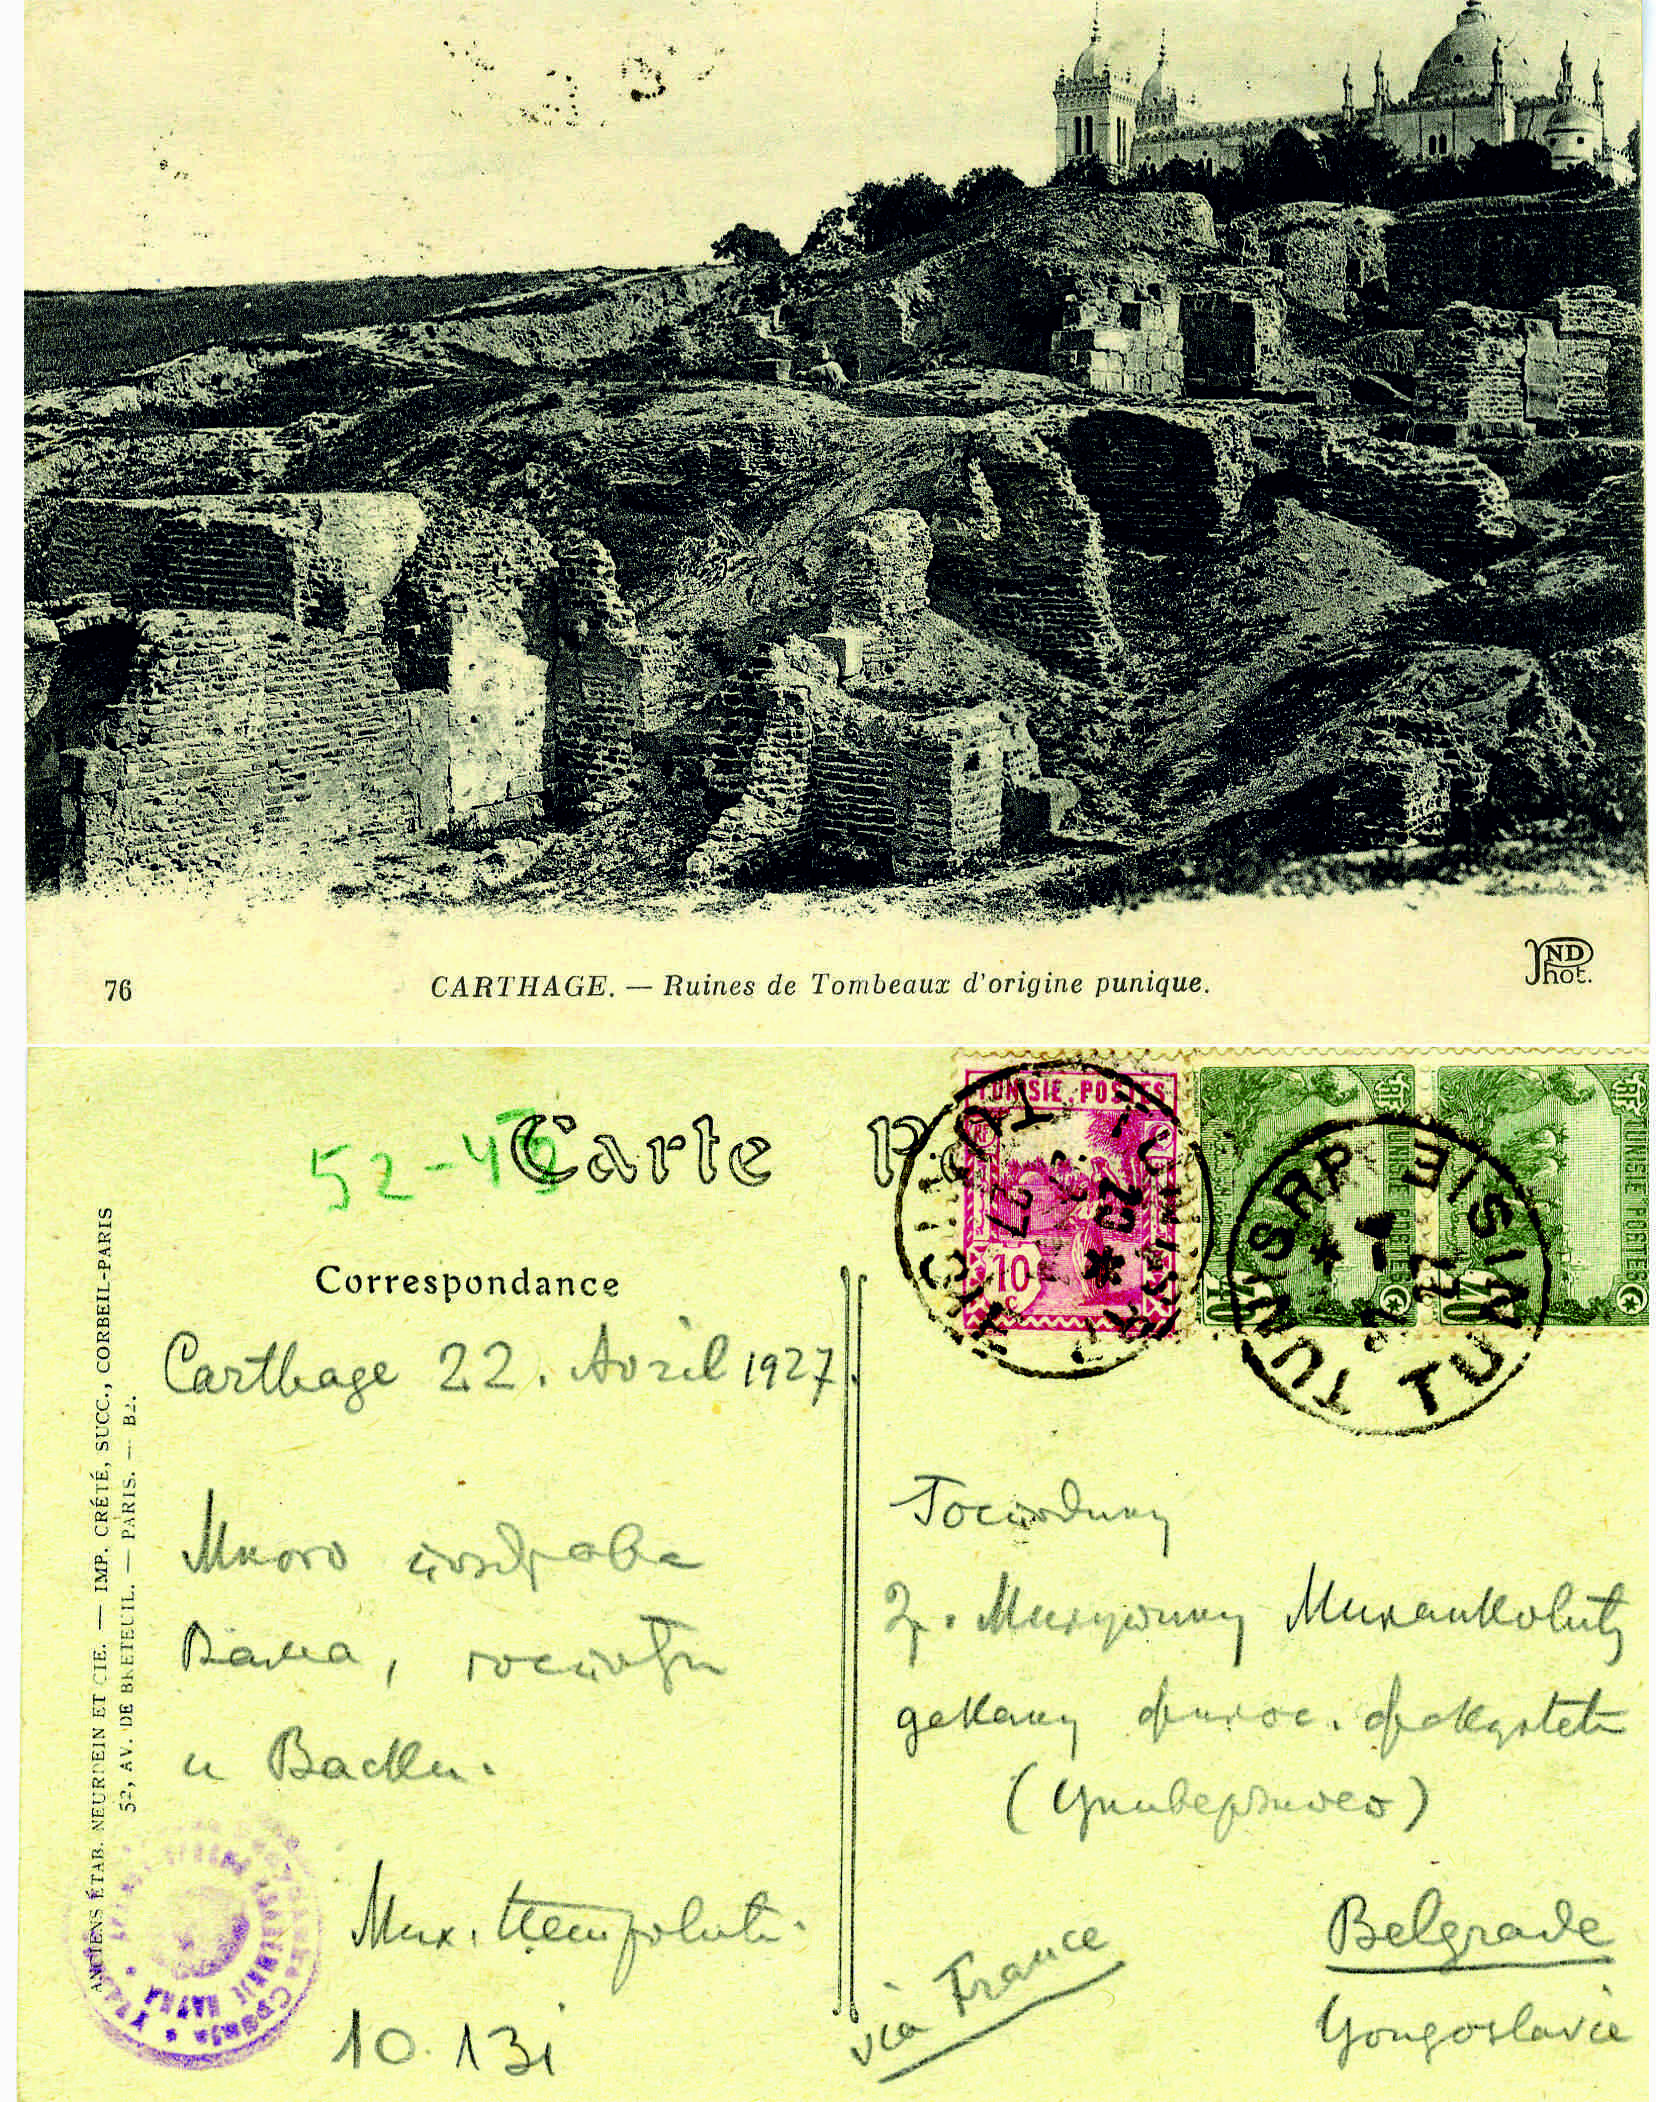 76
CARTHAGE. — Ruines de Tombeaux d'origine punique.
ND
Phot.
52-46
Carte
Correspondance
TUNISIE POSTES
RF
10
c
TUNISIE POSTES
RF
40
TUNISIE POSTES
RF
40
TUNIS RP
TUNISIE
27
27
ANCIENS ÉTAB. NEURDEIN ET CIE. — IMP. CRÉTÉ, SUCC., CORBEIL-PARIS
52, AV. DE BRETEUIL. — PARIS. — B2.
Carthage 22. Avril 1927.
Много поздрава
Вама, госпођи
и Васки.
Мих. Петровић
10.131
Господину
Г. Милутину Миланковићу
декану филос. факултета
(Универзитет)
via France
Belgrade
Yougoslavie